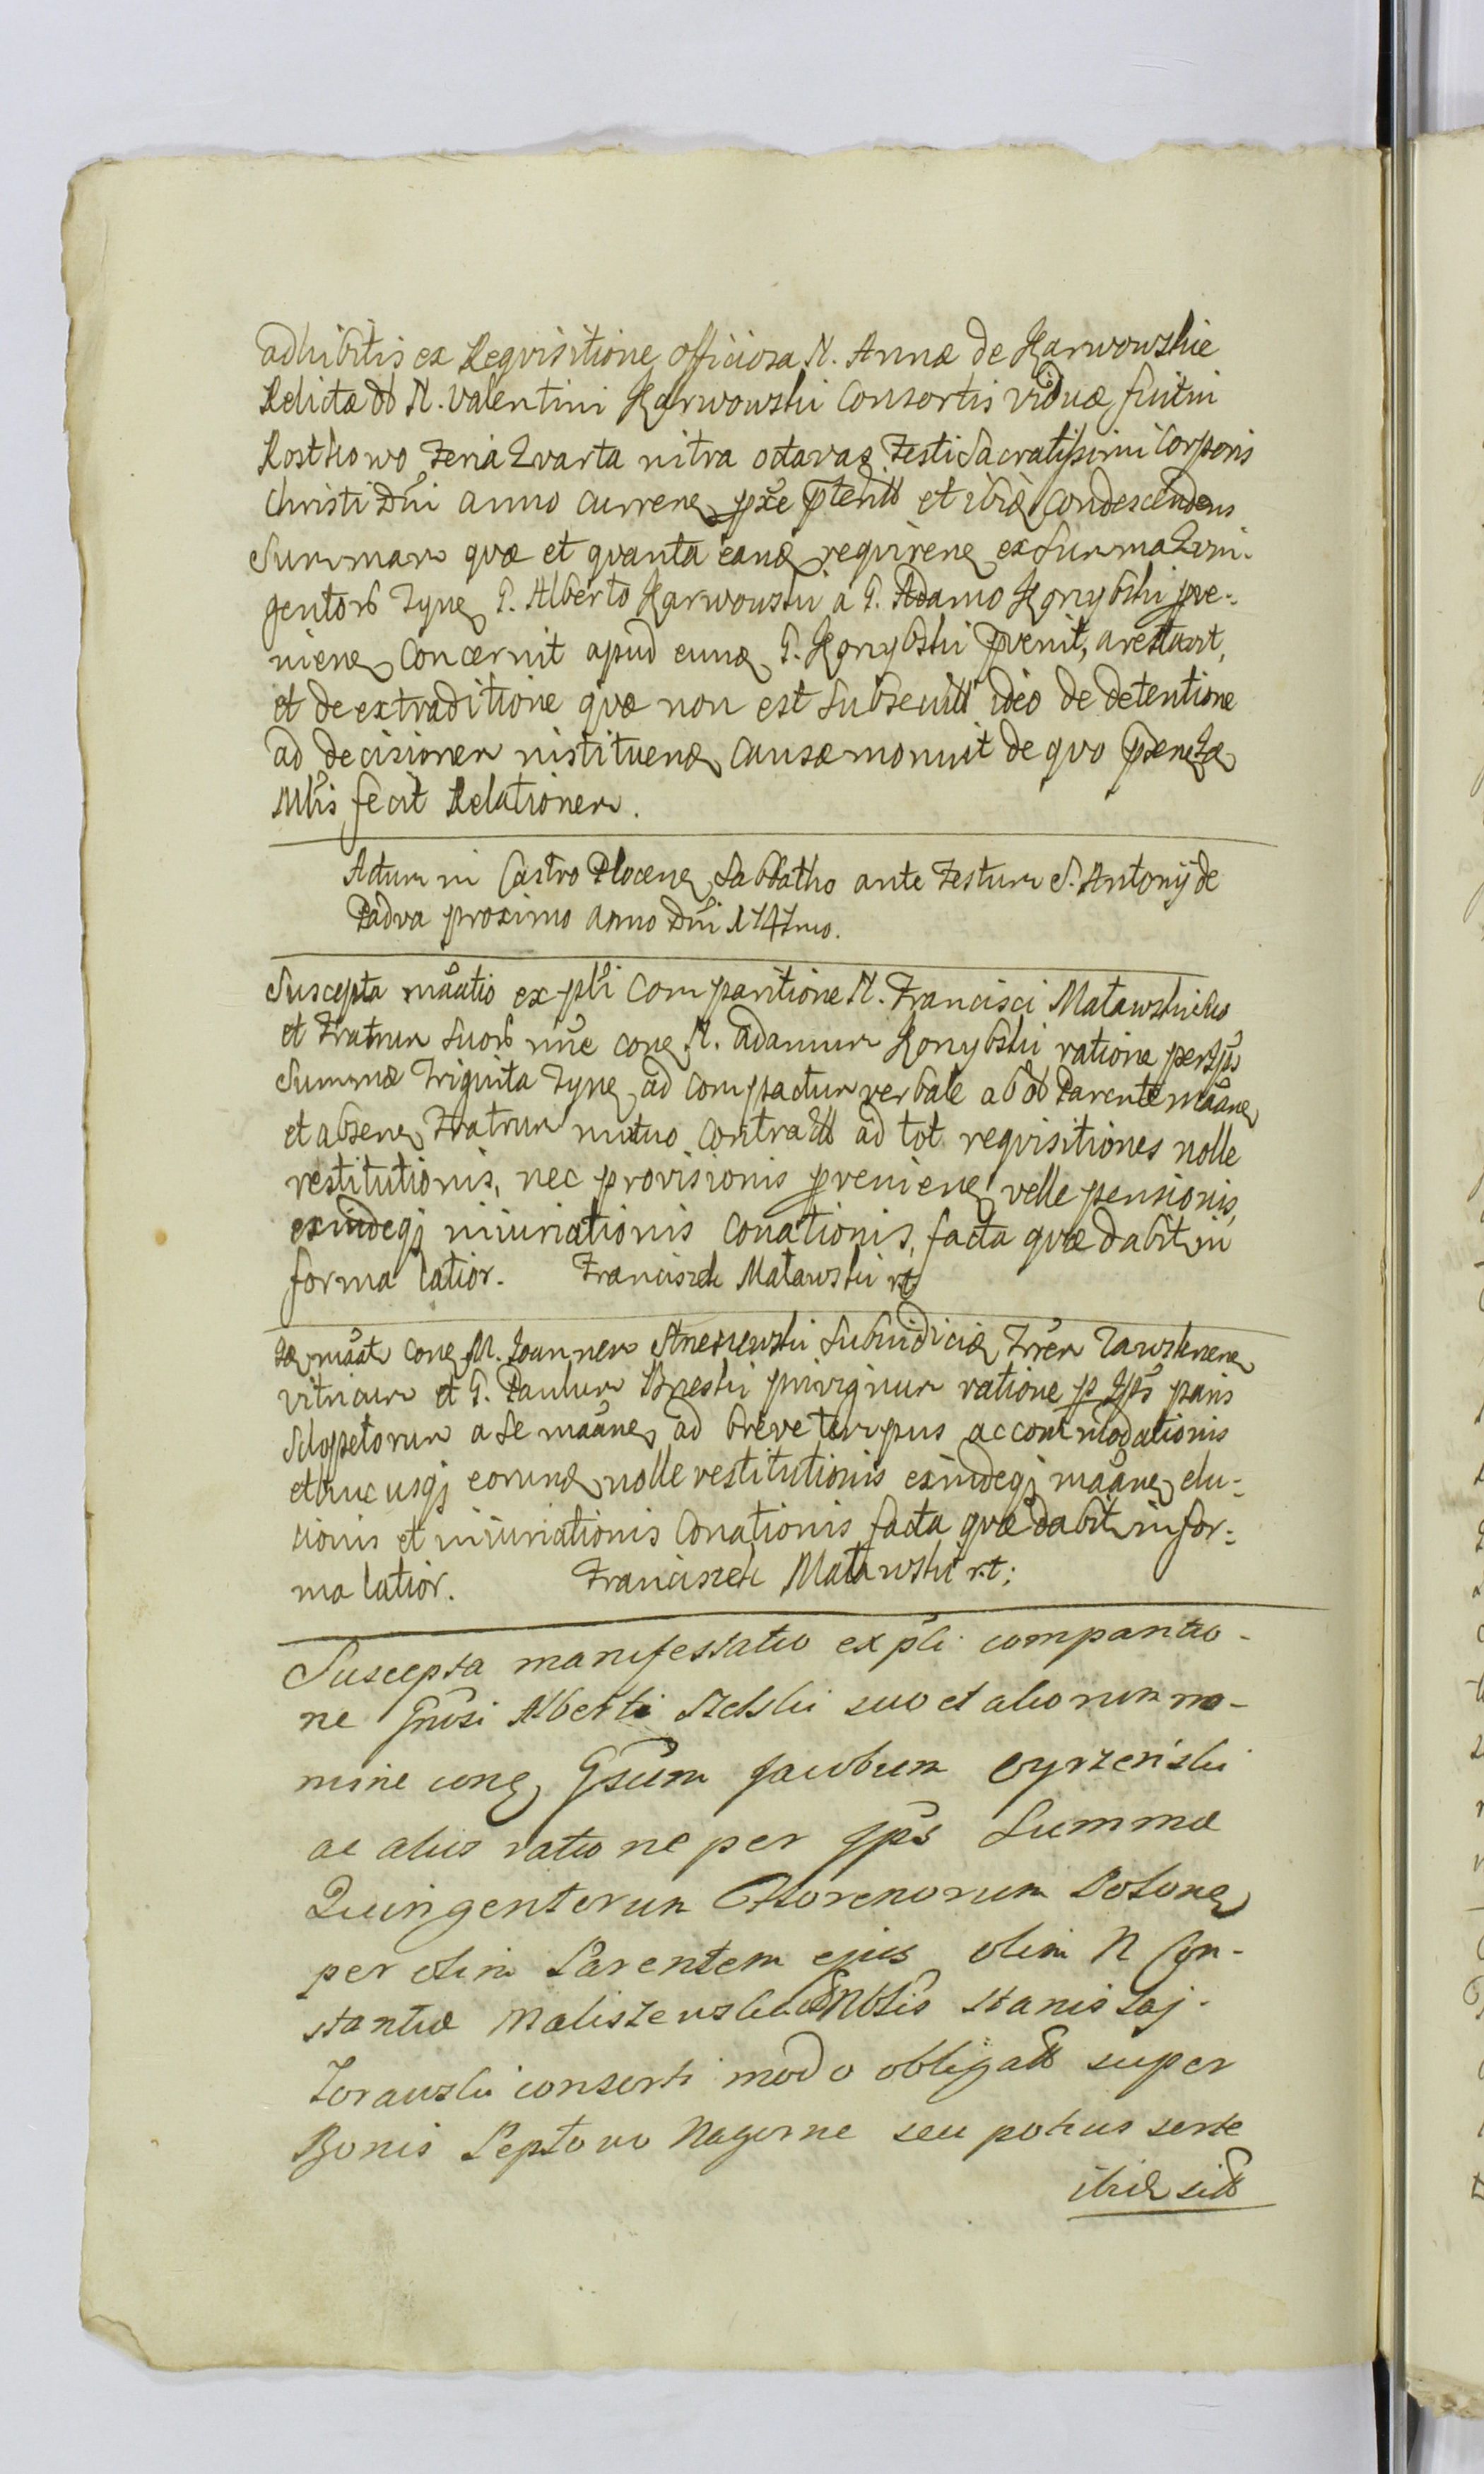 adhibitis ex Requisitione officiosa N. Annæ de Karwowskie
Relictæ N. Valentini Karwowski Consortis viduæ fuit in
Rostkowo Feria Qvarta intra octavas Festi Sacratissimi Corporis
Christi Dni anno curren pxe pterit et ibid condescendens
Summam quæ et qvanta eand requiren ex Summa Qvin-
gentorb Tyne G. Alberto Karwowski a G. Adamo Konybski pve-
nien concernit apud eund G. Konybski pvenit, arestavit,
et de extraditione qvæ non est Subsecuta ideo de detentione
ad decisionem instituend causæ monuit de qvo
Mlis fecit Relationem.
Actum in Castro Plocen Sabbatho ante Festum S. Antonij de
Padva proximo Anno Dni 1747mo.
Suscepta maatio ex pli Comparitione N. Francisci Matawski suo
et Fratrum Suorb nne con N. Adamum Konybski ratione per Ips
Summæ Triginta Tyne ad compactum verbale ab ob Parente maane
et absen Fratrum mutuo contract ad tot requisitiones nolle
restitutionis, nec provisionis pvenien velle pensionis,
exindeqj iniuriationis conationis, facta qvæ dabit in
forma latior. Franciszek Matawski rt
Id maat con M. Joannem Subiudicem Trren Zawskrnen
vitricum et G. Paulum Breski privignum ratione p Ips paris
Sclopetorum a Se maane ad breve tempus accommodationis
et huc usqj eorund nolle restitutionis exindeqj maane elu-
sionis et iniuriationis Conationis facta qvæ dabit in for-
ma latior. Franciszek Matawski rt:
Suscepta manifestatio ex pli comparitio-
ne Gnrosi Alberti suo et aliorum no-
mine con Gsum Jacobum Cyrzenski
ac alios ratione per Ips Summæ
Quingentorum Florenorum Polon
per olim Parentem ejus olim N Con-
stantiæ Maliszewski Nblis Stanislaj
Zorawski consorti modo obligatt super
Bonis Septowo Nagorne seu potius sorte
ibid sitt